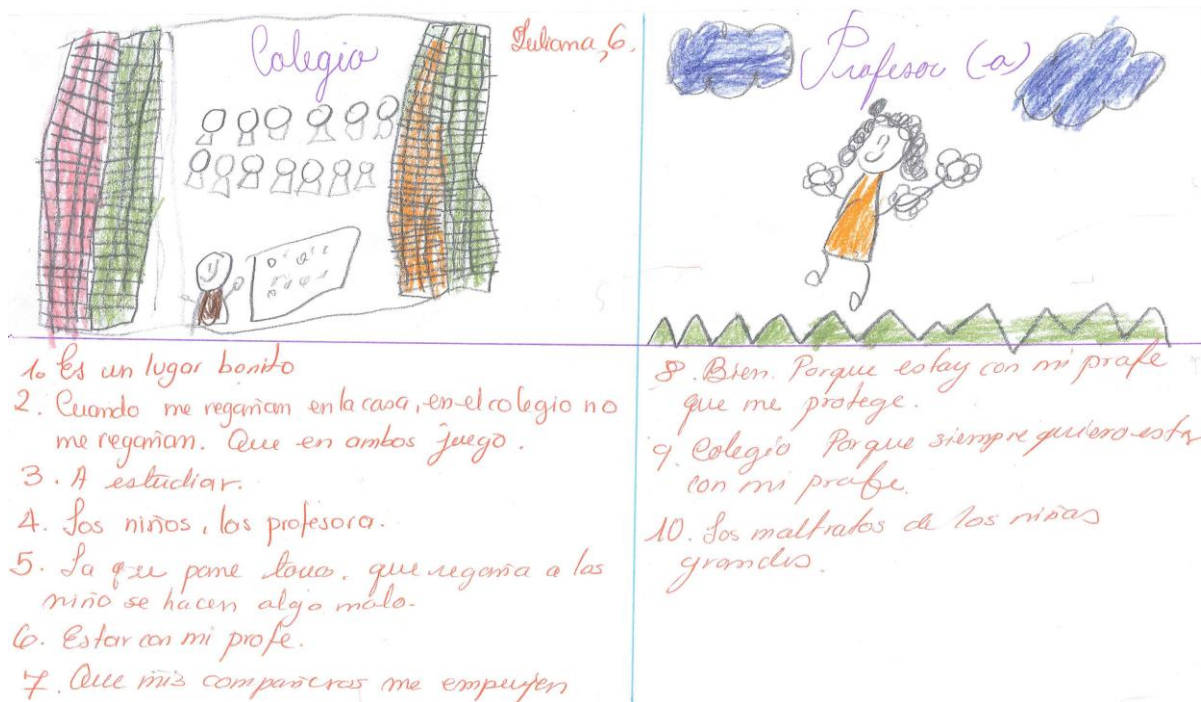 Colegio
Juliana, 6.
1. Es un lugar bonito
2. Cuando me regañan en la casa, en el colegio no
me regañan. Que en ambos juego.
3. A estudiar.
4. Los niños, las profesora.
5. La que pone, que regaña a los
niño se hacen algo malo.
6. Estar con mi profe.
7. Que mis compañeros me empujen
Profesor (a)
8. Bien. Porque estoy con mi profe
que me protege.
9. Colegio Porque siempre quiero estar
con mi profe.
10. Los maltratos de los niños
grandes.